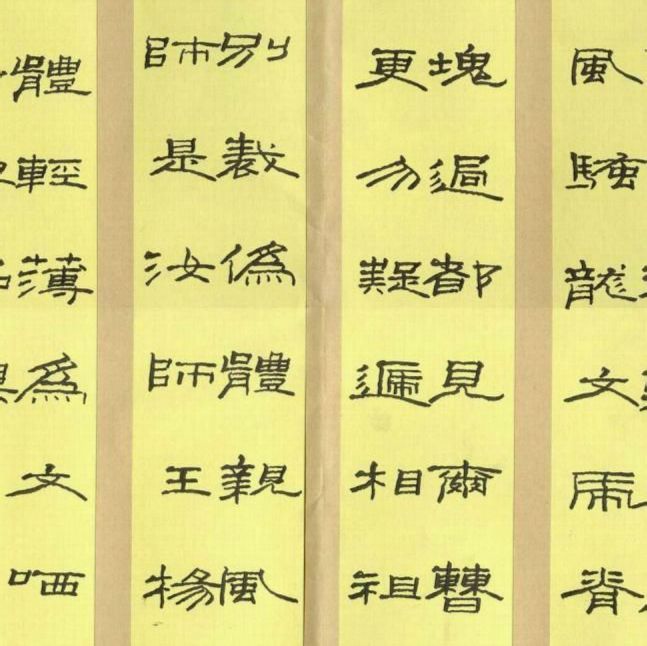 風騷龍文虎脊
塊過都見爾曹
更勿疑遞相祖
別裁偽體親風
師是汝師王楊
體輕薄為文哂